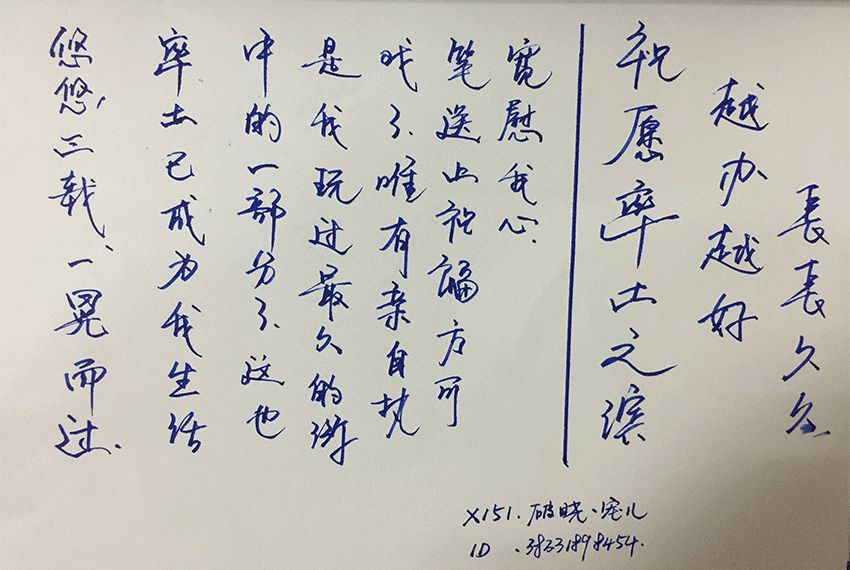 悠悠三载,一晃而过.
率土已成为我生活
中的一部分了.这也
是我玩过最久的游
戏了.唯有亲自执
笔送上祝福方可
宽慰我心.
祝愿率土之滨
越办越好
長長久久
X151.破晓、宠儿
ID .38331898454.